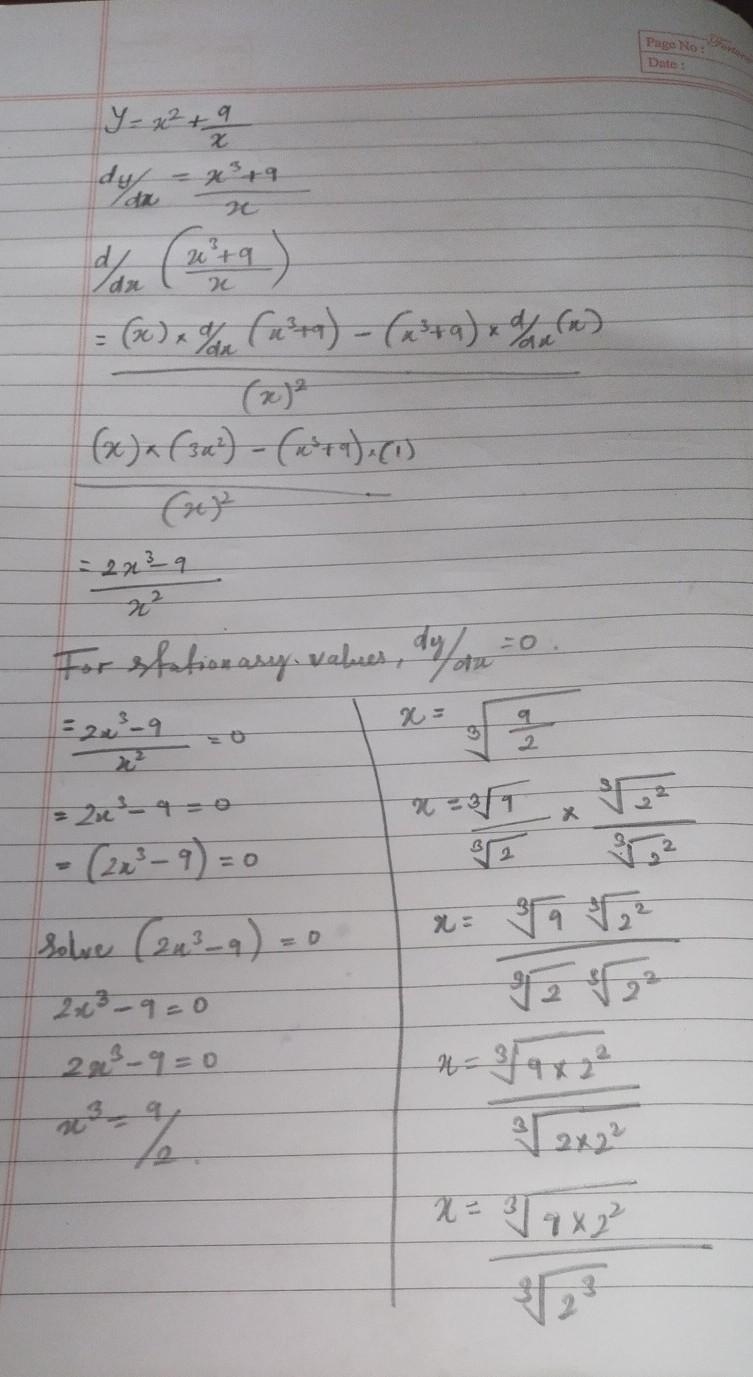 Page No :
Date :
y = x² + 9/x
dy/dx = (x³+9)/x
d/dx ((x³+9)/x)
= ((x) × d/dx (x³+9) − (x³+9) × d/dx (x))/(x)²
((x) × (3x²) − (x³+9) × (1))/(x)²
= (2x³−9)/x²
For stationary values, dy/dx = 0.
= (2x³−9)/x² = 0
= 2x³ − 9 = 0
= (2x³ − 9) = 0
Solve (2x³−9) = 0
2x³ − 9 = 0
2x³ − 9 = 0
x³ = 9/2.
x = ∛(9/2)
x = ∛9/∛2 × ∛2²/∛2²
x = (∛9 ∛2²)/(∛2 ∛2²)
x = ∛(9×2²)/∛(2×2²)
x = ∛(9×2²)/∛(2³)